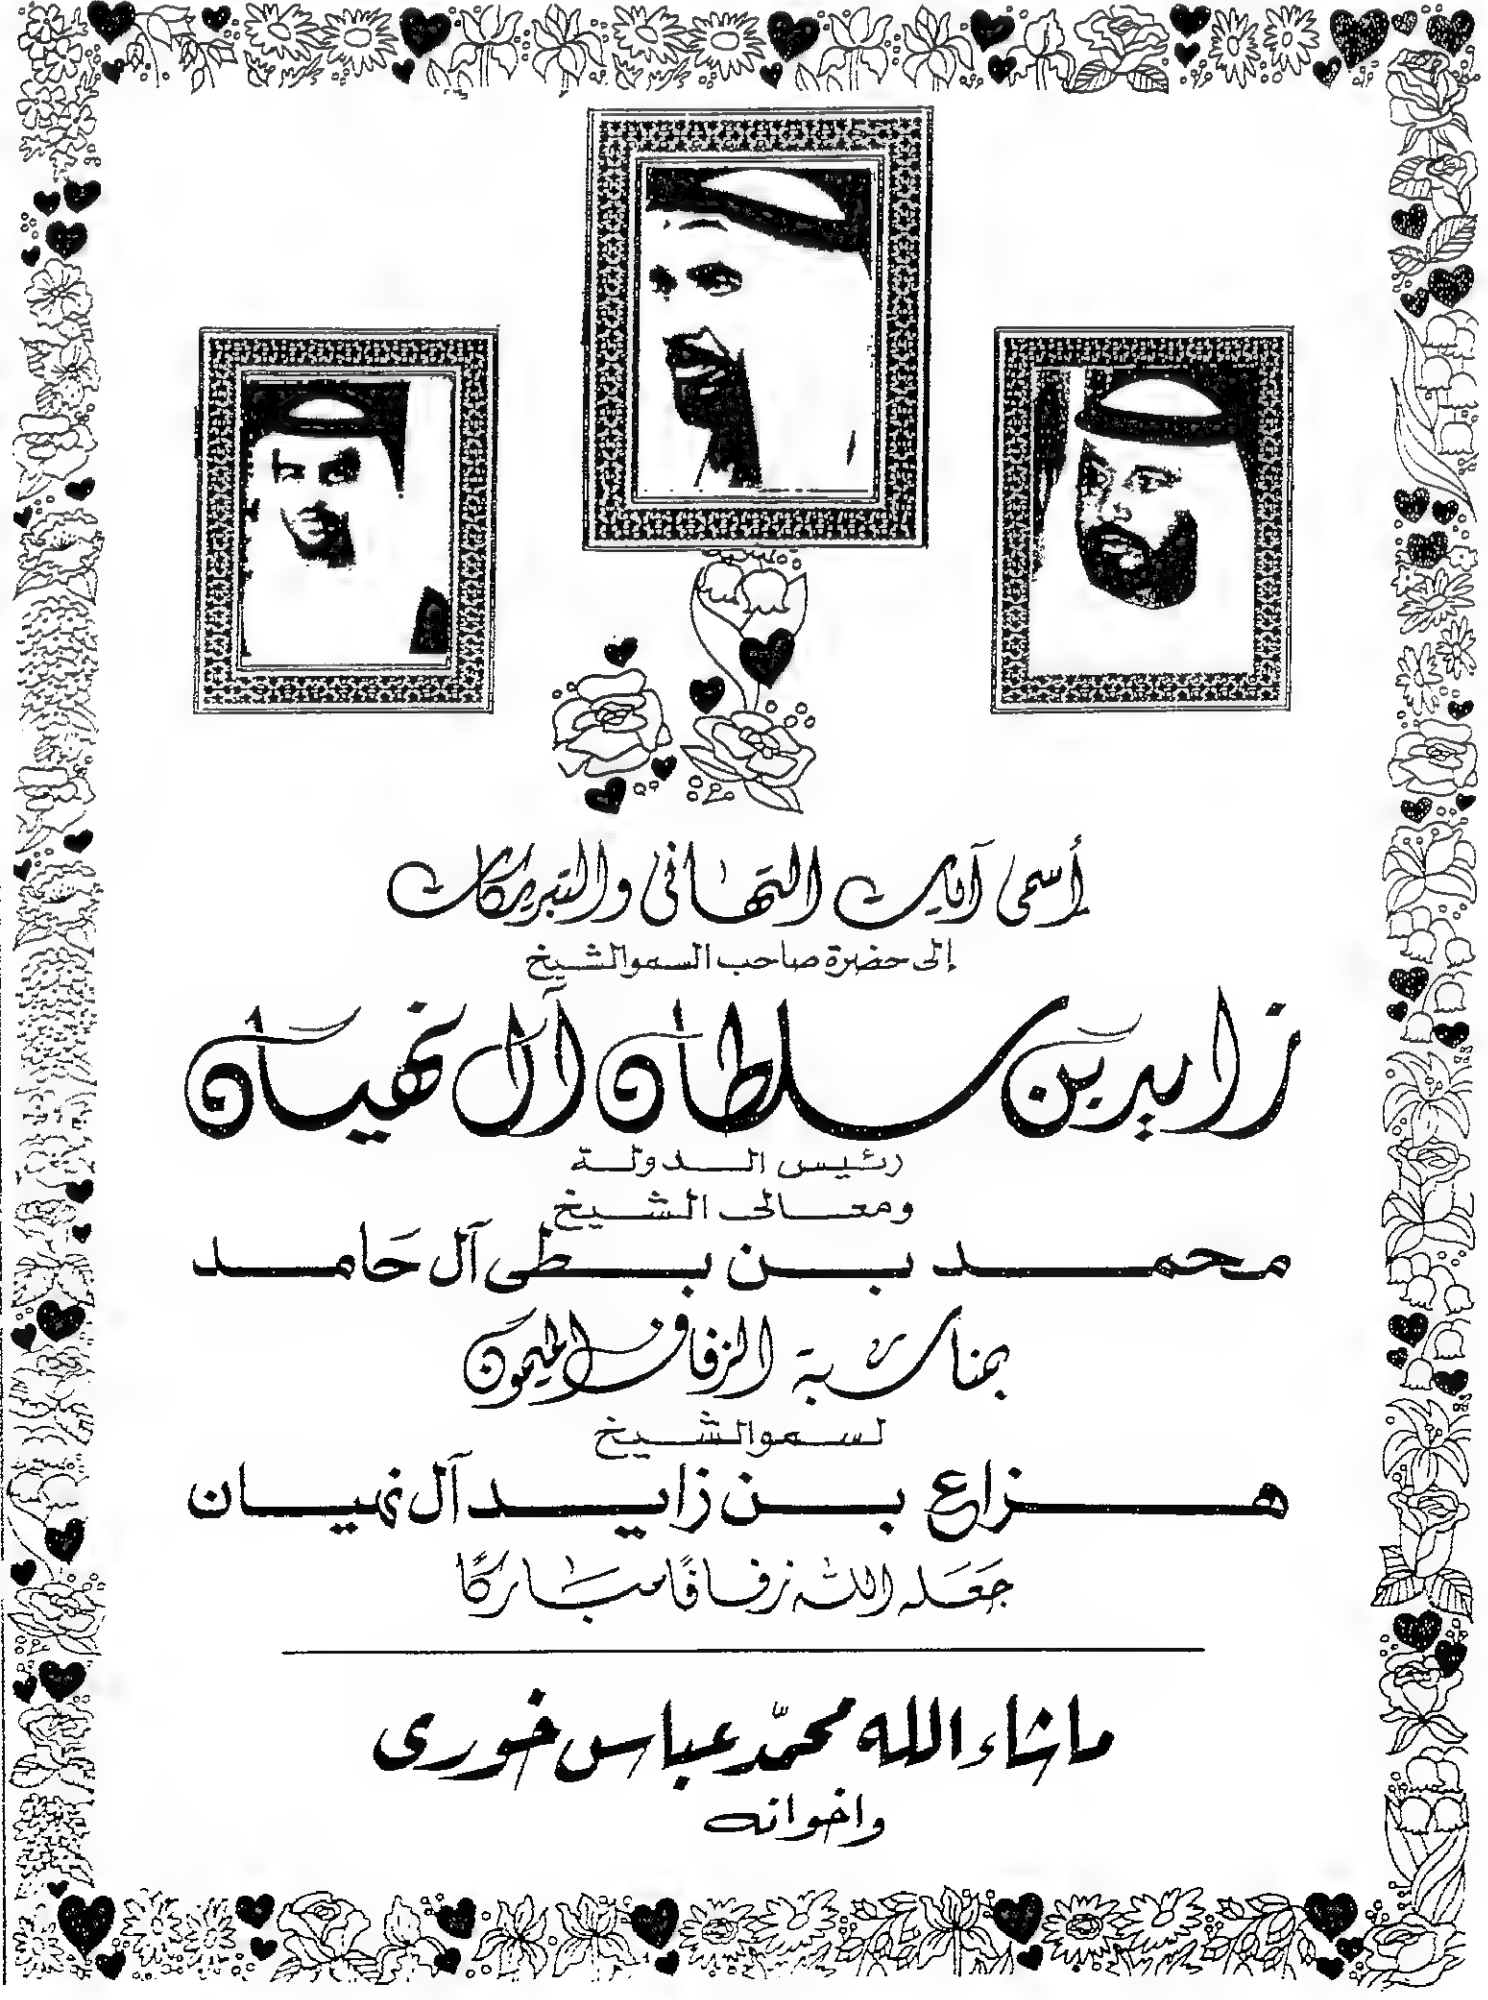 أسمى آيات التهاني والتبريكات
إلى حضرة صاحب السمو الشيخ
زايد بن سلطان آل نهيان
رئيس الدولة
ومعالى الشيخ
محمد بن بطى آل حامد
بمناسبة الزفاف الميمون
لسمو الشيخ
هزاع بن زايد آل نهيان
جَعَله الله زفافًا مبَاركًا
ما شاء الله محمّد عباس خورى
واخوانه